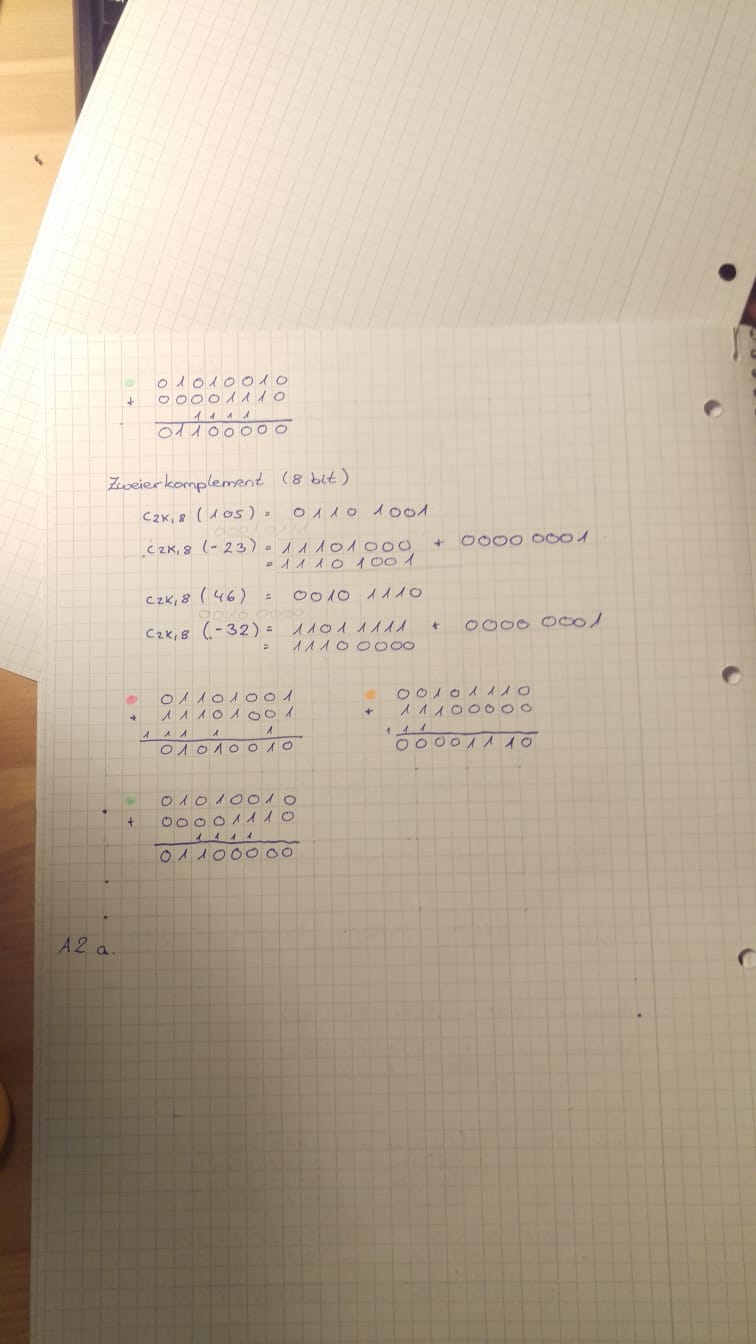 01010010
+ 00001110
1111
01100000
Zweierkomplement (8 bit)
CZK,8 (105) = 0110 1001
CZK,8 (-23) = 11101000 + 0000 0001
= 1110 1001
CZK,8 (46) = 0010 1110
CZK,8 (-32) = 1101 1111 + 0000 0001
= 11100000
01101001 00101110
+ 11101001 + 11100000
1 1 1 1 1 1 1 1
01010010 00001110
01010010
+ 00001110
1111
01100000
A2 a.